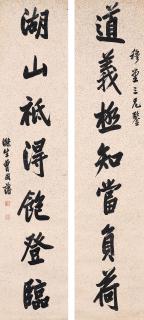 道義極知當負荷
湖山祗得飽登臨
穆堂三兄鑒
滌生曾國藩